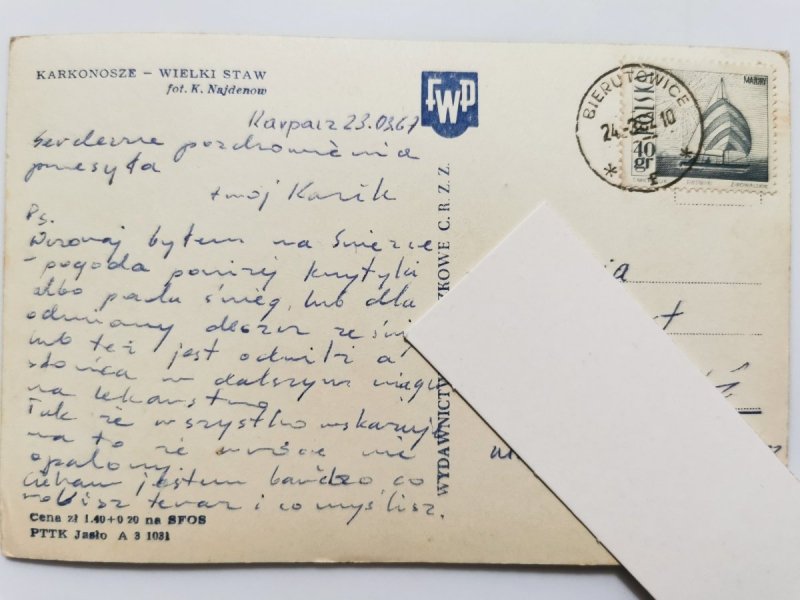 KARKONOSZE – WIELKI STAW
fot. K. Najdenow
FWP
BIERUTOWICE
24.-3.
10
POLSKA
40 gr
Karpacz 23.03.67
Serdeczne pozdrowienia
przesyła
twój Kazik
Ps.
Wczoraj byłem na Śnieżce
- pogoda poniżej krytyki
albo pada śnieg, lub dla
odmiany deszcz ze śni
lub też jest odwilż a
słońca w dalszym ciągu
na lekarstwo
Tak że wszystko wskazuje
na to że wrócę nie
opalony.
Ciekaw jestem bardzo co
robisz teraz i co myślisz.
Cena zł 1.40+0 20 na SFOS
PTTK Jasło A 3 1031
WYDAWNICTW
ZKOWE C. R. Z. Z.